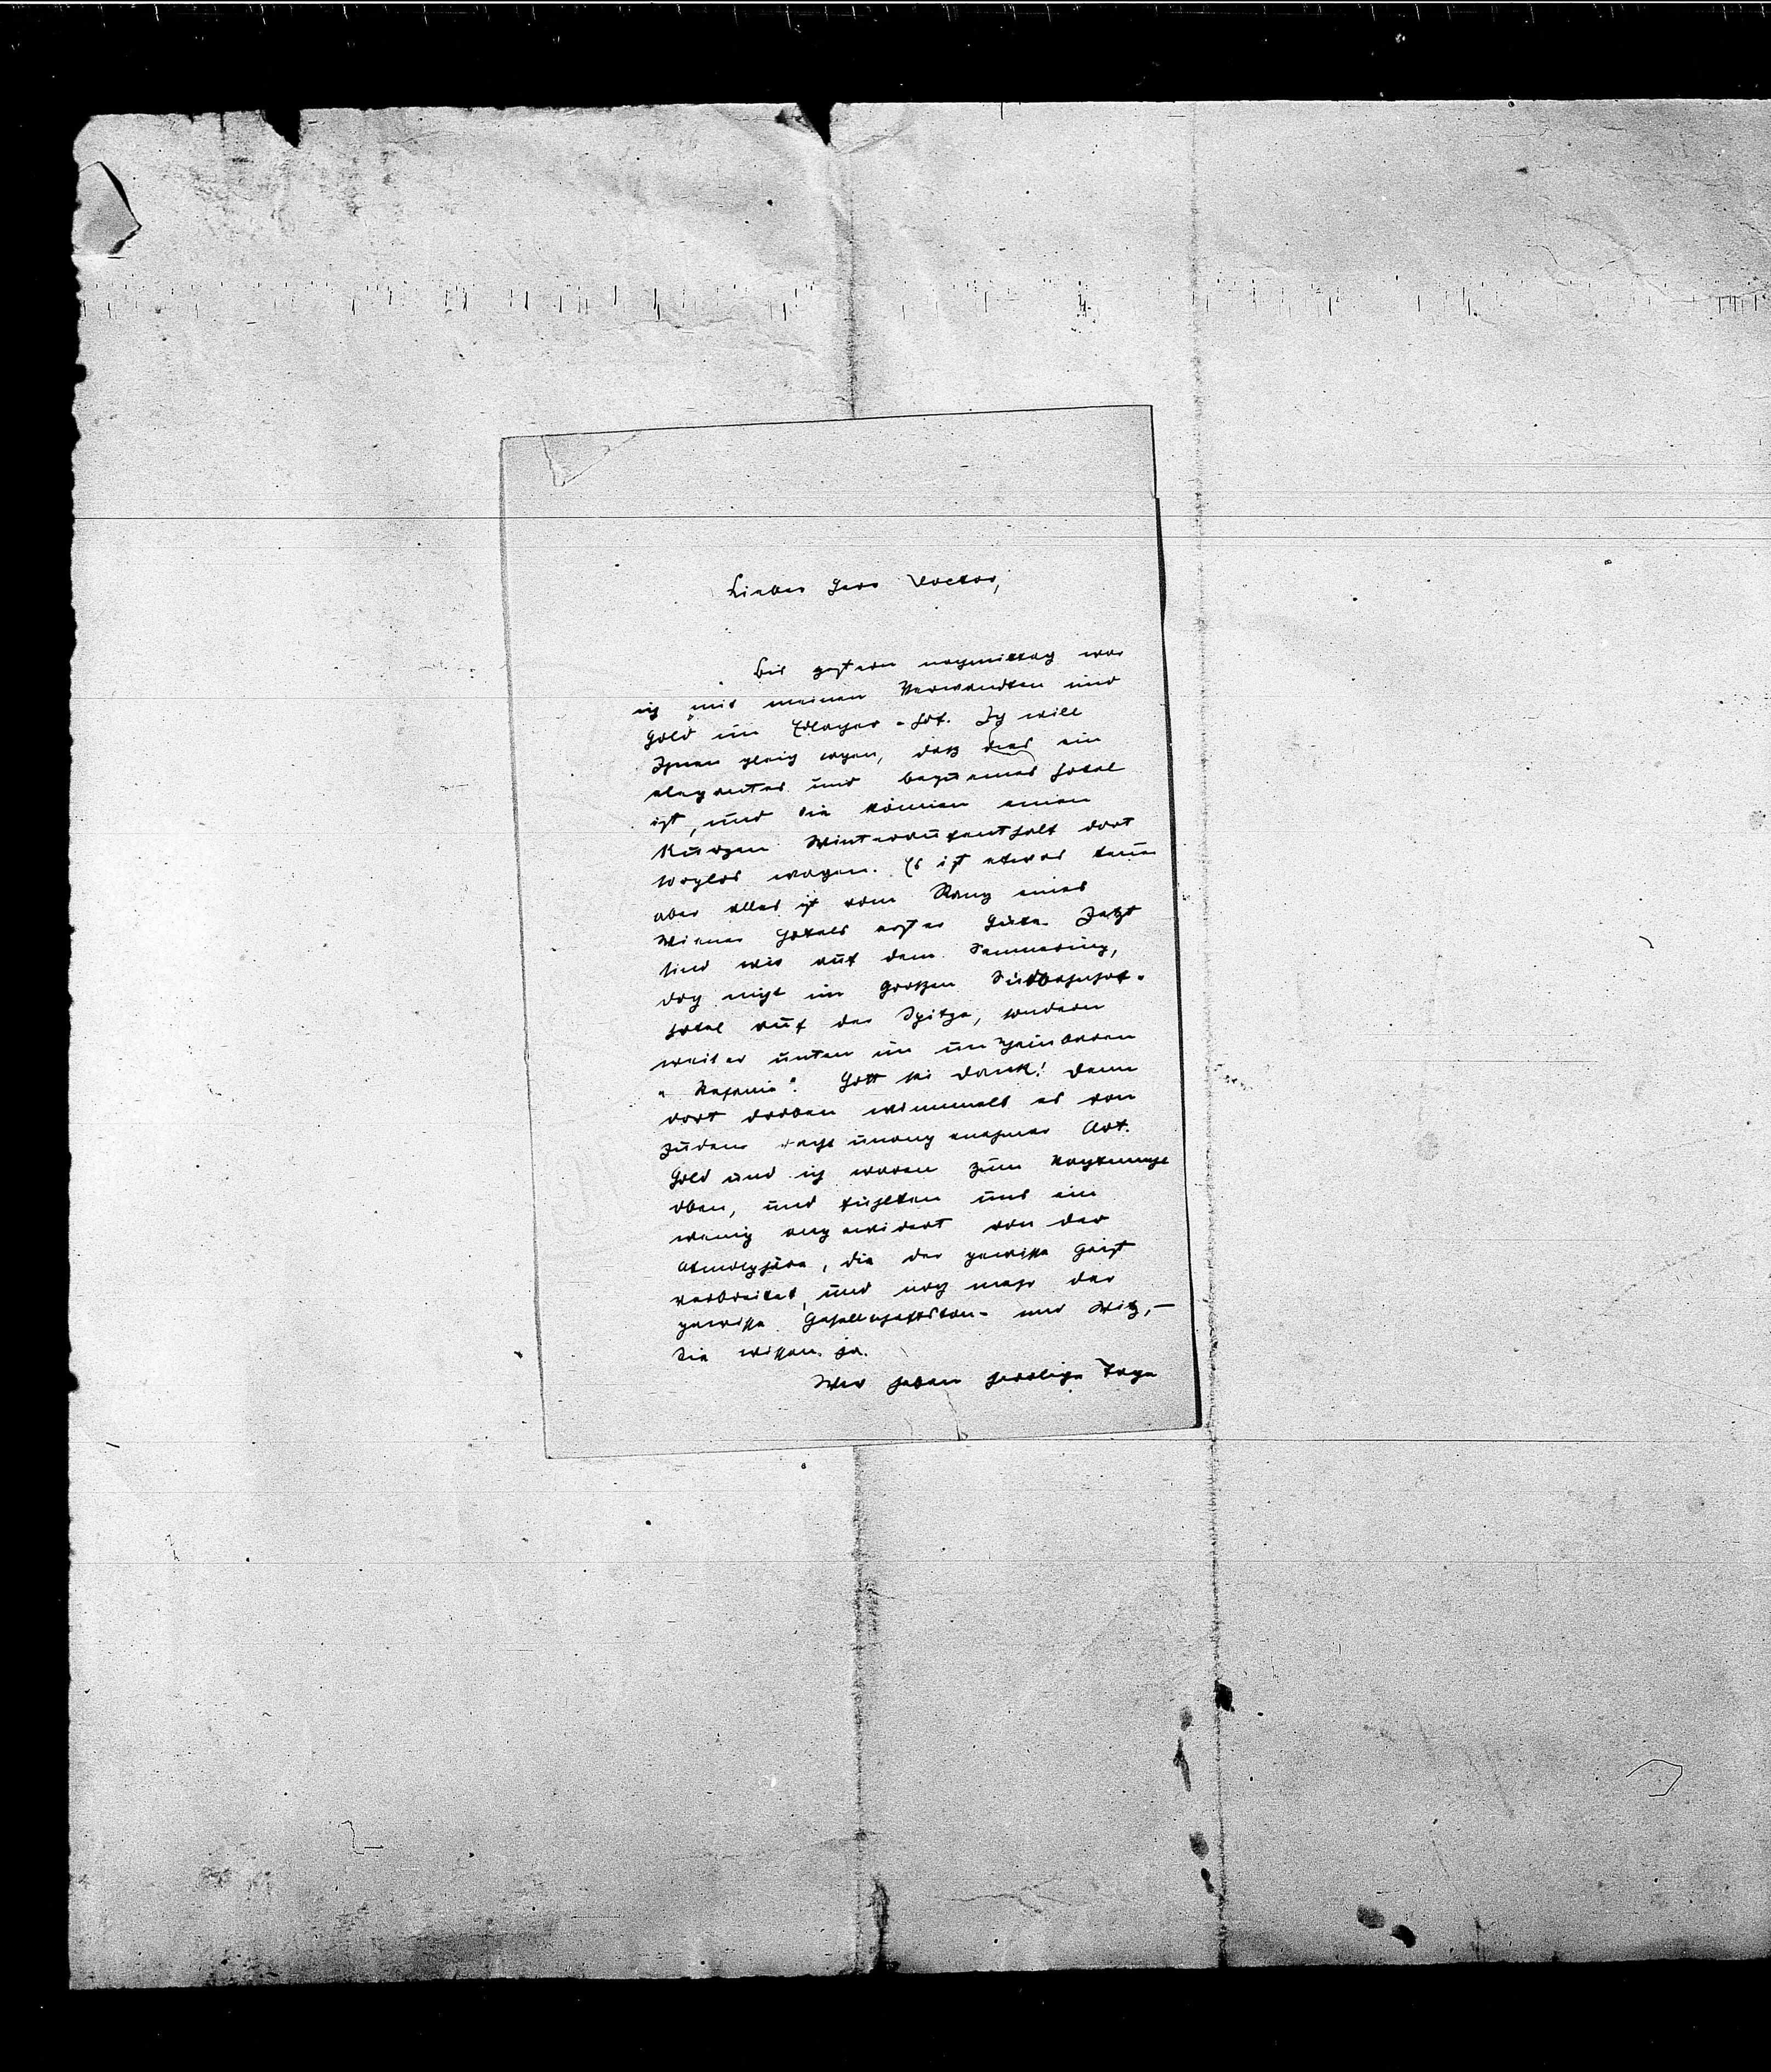 Lieber Herr Doctor,
Bis gestern nachmittag war
ich mit meinen Verwandten und
Gold im Edlacher-Hof. Ich will
Ihnen gleich sagen, daß dies ein
elegantes und bequemes Hotel
ist, und Sie können einen
kurzen Winteraufenthalt dort
wagen. Es ist etwas
aber alles ist vom Rang eines
Wiener Hotels erster Güte. Jetzt
sind wir auf dem Semmering,
doch nicht im großen Südbahnhof-
hotel auf der Spitze, sondern
weiter unten im unscheinbaren
" ". Gott sei dank! Denn
dort droben wimmelt es von
Juden recht unangenehmer Art.
Gold und ich waren zum Nachtmahl
oben, und fühlten uns ein
wenig angewidert von der
Atmosphäre, die der gewisse Geist
verbreitet, und noch mehr der
gewisse Gesellschaftston- und Witz,—
Sie wissen ja.
Wir haben herrliche Tage